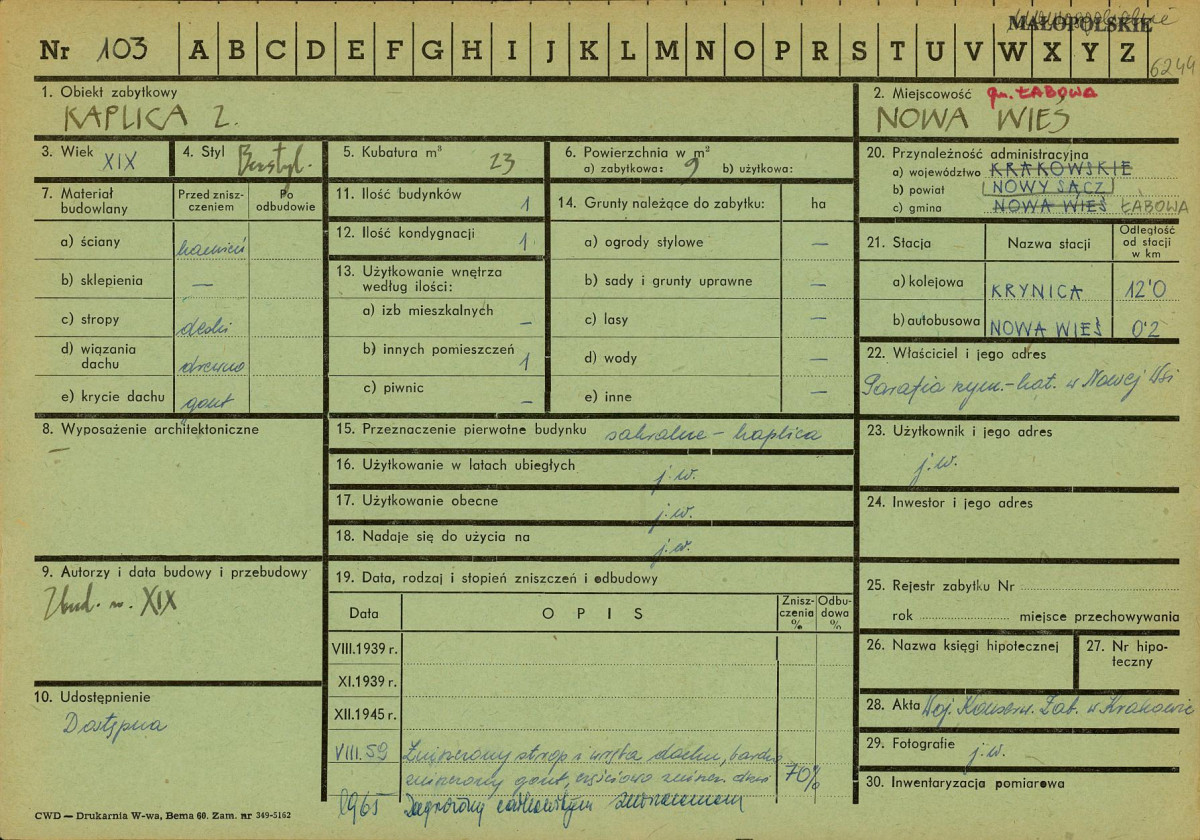 MAŁOPOLSKIE
Nr 103 A B C D E F G H I J K L M N O P R S T U V W X Y Z
6244
1. Obiekt zabytkowy
KAPLICA 2.
2. Miejscowość gm. ŁABOWA
NOWA WIEŚ
3. Wiek XIX
4. Styl Bezstyl.
5. Kubatura m³ 23
6. Powierzchnia w m²
a) zabytkowa: 9 b) użytkowa:
20. Przynależność administracyjna
a) województwo KRAKOWSKIE
b) powiat NOWY SĄCZ
c) gmina NOWA WIEŚ ŁABOWA
7. Materiał budowlany
Przed zniszczeniem
Po odbudowie
a) ściany kamień
b) sklepienia —
c) stropy deski
d) wiązania dachu drewno
e) krycie dachu gont
11. Ilość budynków 1
12. Ilość kondygnacji 1
13. Użytkowanie wnętrza według ilości:
a) izb mieszkalnych —
b) innych pomieszczeń 1
c) piwnic —
14. Grunty należące do zabytku: ha
a) ogrody stylowe —
b) sady i grunty uprawne —
c) lasy —
d) wody —
e) inne —
21. Stacja
Nazwa stacji
Odległość od stacji w km
a) kolejowa KRYNICA 12'0
b) autobusowa NOWA WIEŚ 0'2
22. Właściciel i jego adres
Parafia rzym.-kat. w Nowej Wsi
8. Wyposażenie architektoniczne
—
15. Przeznaczenie pierwotne budynku sakralne – kaplica
16. Użytkowanie w latach ubiegłych j.w.
17. Użytkowanie obecne j.w.
18. Nadaje się do użycia na j.w.
23. Użytkownik i jego adres
j.w.
24. Inwestor i jego adres
9. Autorzy i data budowy i przebudowy
Zbud. w. XIX
19. Data, rodzaj i stopień zniszczeń i odbudowy
Data
OPIS
Zniszczenia %
Odbudowa %
VIII.1939 r.
XI.1939 r.
XII.1945 r.
VIII.59 Zniszczony strop i więźba dachu, bardzo
zniszczony gont, częściowo zniszcz. 70%
1965 Zagrożony całkowitym zniszczeniem
25. Rejestr zabytku Nr
rok miejsce przechowywania
26. Nazwa księgi hipotecznej
27. Nr hipoteczny
10. Udostępnienie
Dostępna
28. Akta Woj. Konserw. Zab. w Krakowie
29. Fotografie j.w.
30. Inwentaryzacja pomiarowa
CWD — Drukarnia W-wa, Bema 60. Zam. nr 349-5162